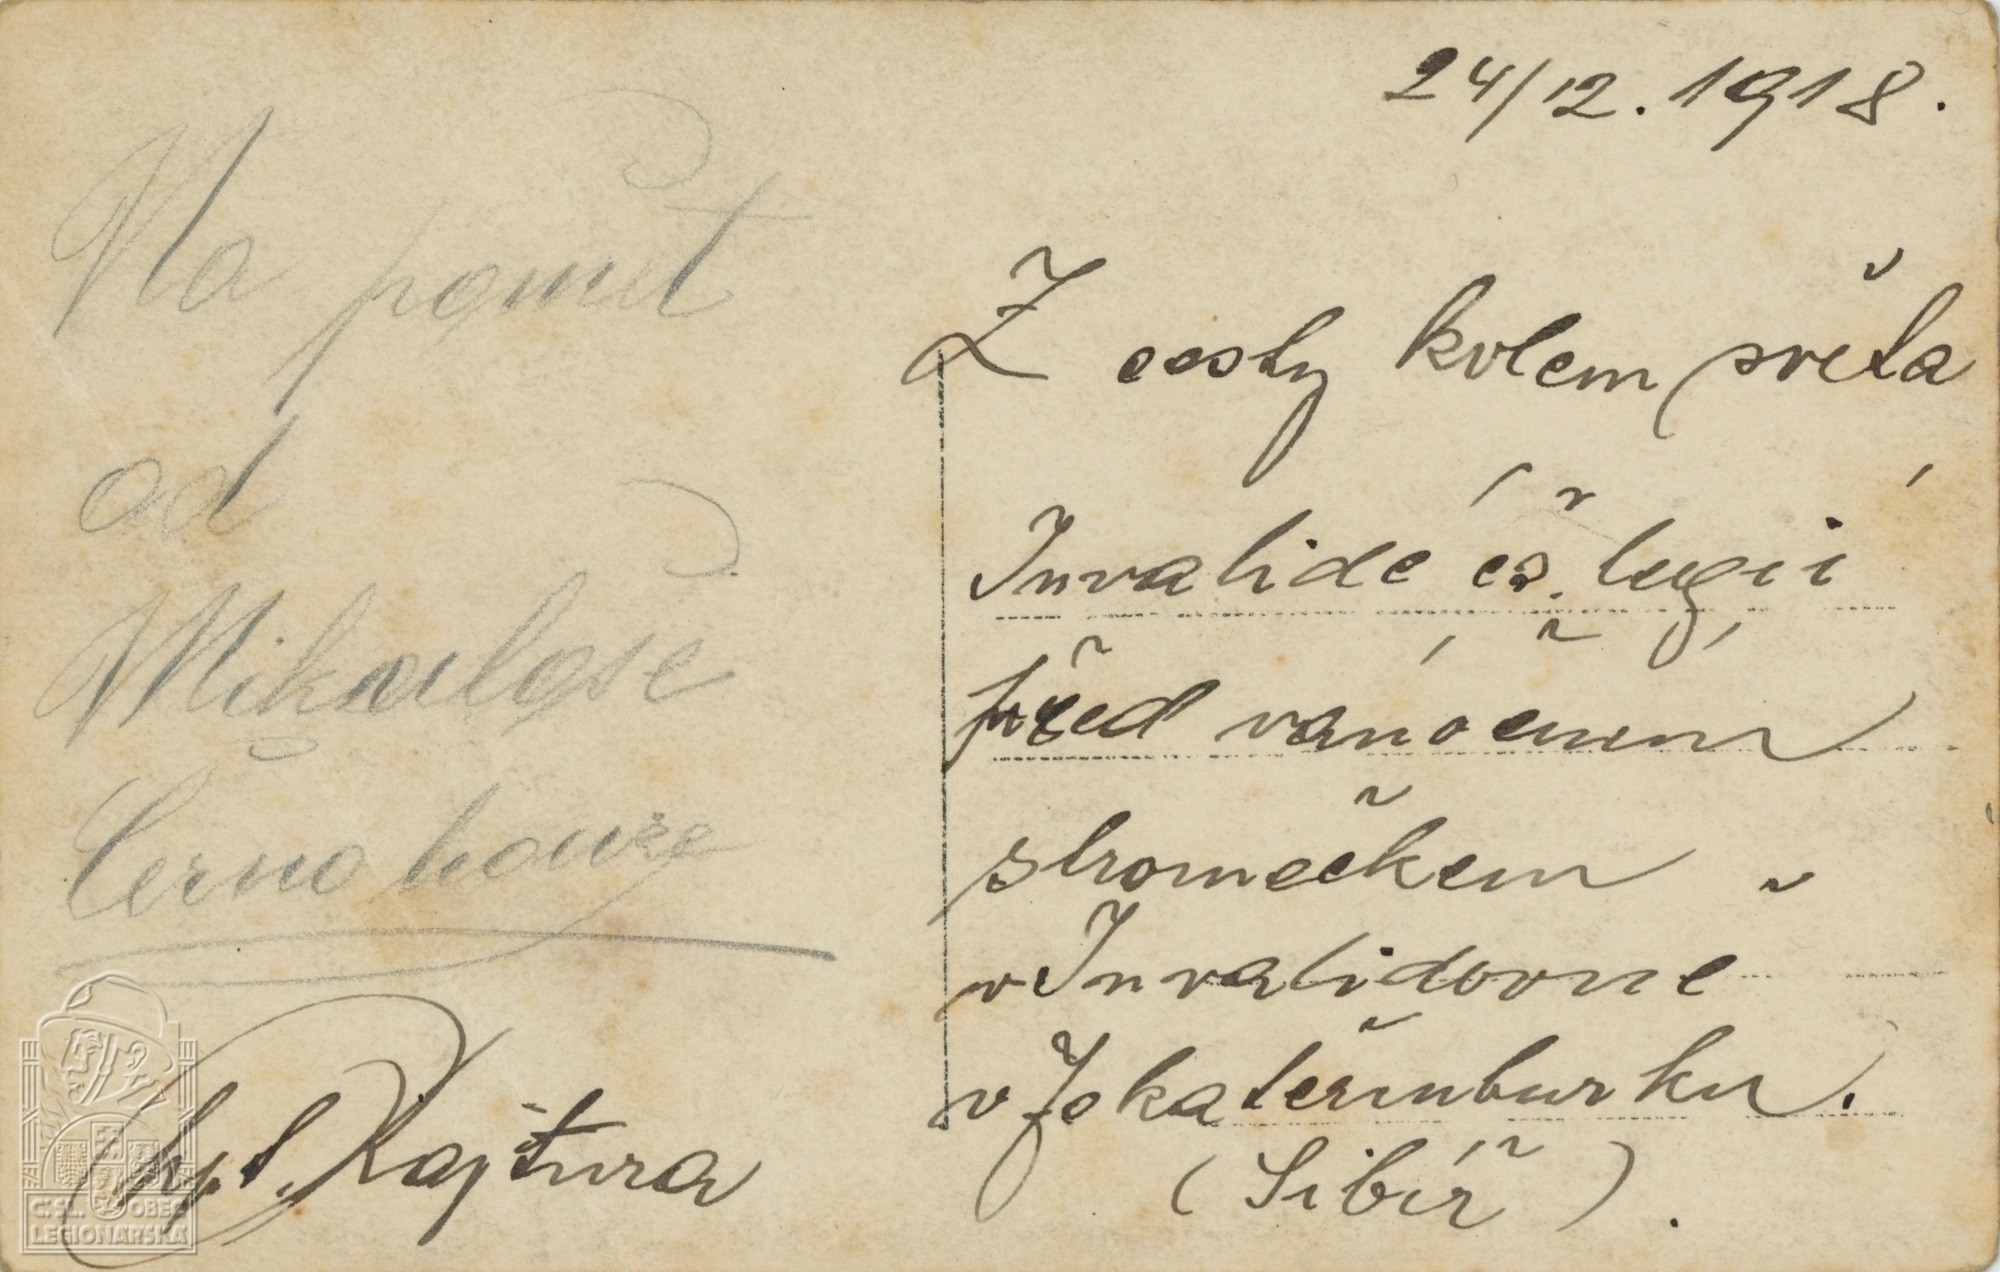 24/12. 1918.
Na pamět
od
Mikuláše
Černohouze
Rajtura
Z cesty kolem světa
Invalidé čs. legií
před vánočním
stromečkem
v Invalidovně
v Jekatěrinburku.
(Sibíř).
Č:SL. OBEC
LEGIONÁŘSKÁ